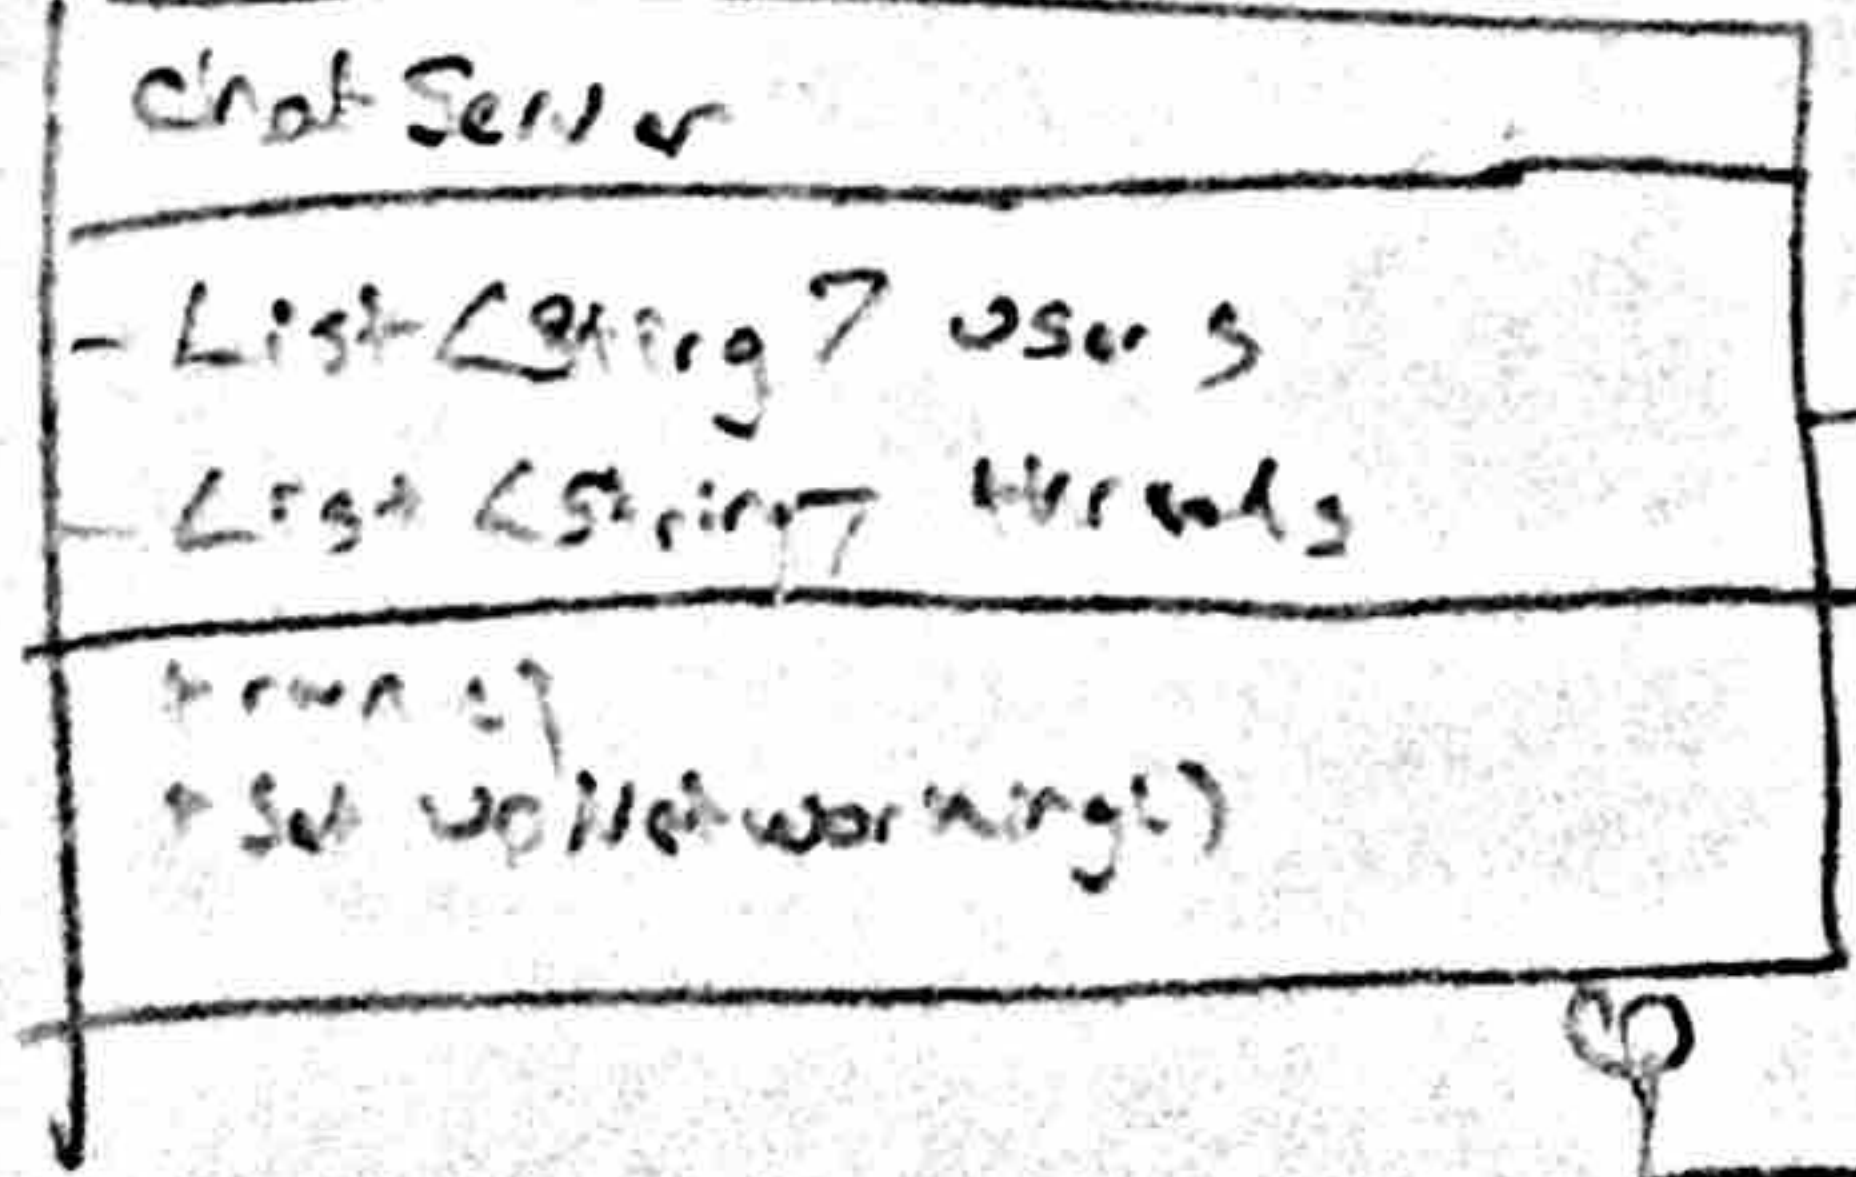 Chat Server
- List <String> users
- List <String> threads
+ run ()
+ Set up Networking()